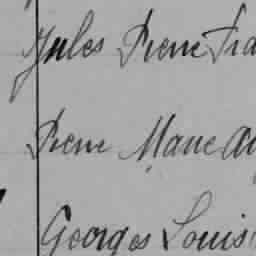 Jules Pierre Fra
Pierre Marie Au
Georges Louis